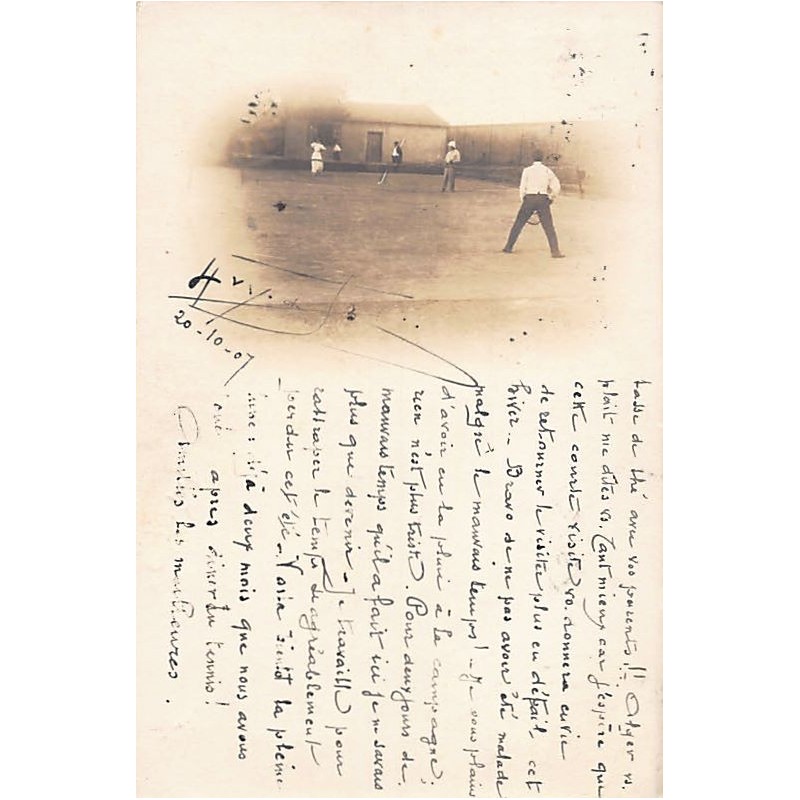 tasse de thé avec vos parents !! Alger vs.
plait me dites vs. Tant mieux car j'espère que
cette courte visite vs. donnera envie
de retourner le visiter plus en détail cet
hiver. Bravo de ne pas avoir été malade
malgré le mauvais temps ! - Je vous plains
d'avoir eu la pluie à la campagne ;
rien n'est plus triste. Pour deux jours de
mauvais temps qu'il a fait ici je ne savais
plus que devenir - Je travaille pour
rattraper le temps agréablement
perdu cet été - Voilà bientôt la pleine
lune : déjà deux mois que nous avons
joué après dîner au tennis !
Amitiés les meilleures.
20-10-07